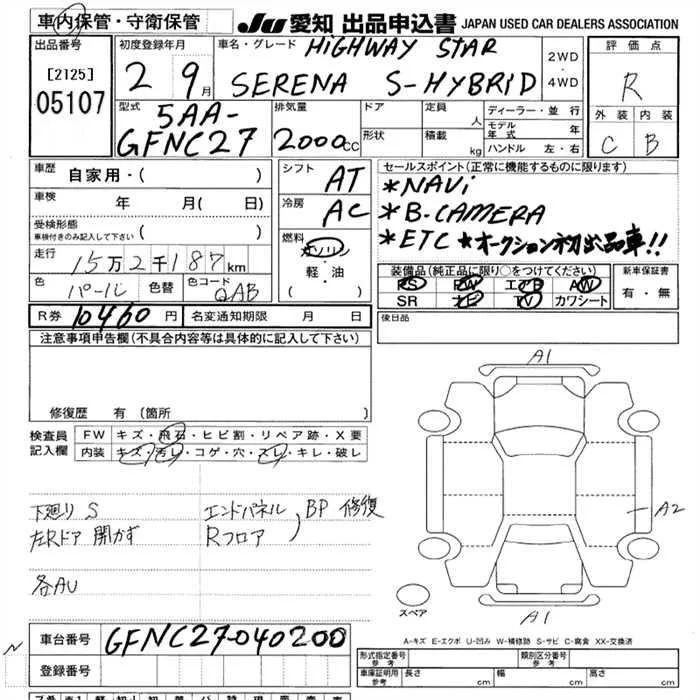 車内保管・守衛保管 JU 愛知 出品申込書 JAPAN USED CAR DEALERS ASSOCIATION
出品番号 初度登録年月 車名・グレード HiGHWAY STAR 2WD・4WD 評価点
[2125] 2 9月 SERENA S-HYBRiD R
05107 型式 5AA-GFNC27 排気量 2000cc ドア 定員 人 ディーラー・並行 外装 内装
形状 積載 kg モデル年式 年 ハンドル 左・右 C B
車歴 自家用・( ) シフト AT セールスポイント(正常に機能するものに限ります)
車検 年 月( 日) 冷房 AC *NAVi
受検形態 *B-CAMERA
車検付きのみ記入して下さい ( ) 燃料 ガソリン・軽・油 ( ) *ETC *オークション初出品車!!
走行 15万2千187km 装備品(純正品に限り○をつけてください) 新車保証書
色 パール 色替 色コード QAB PS PW エアB AW 有・無
SR ナビ TV カワシート
R券 10460円 名変通知期限 月 日 後日品
注意事項申告欄(不具合内容等は具体的に記入して下さい)
修復歴 有(箇所
検査員記入欄 FW キズ・飛石・ヒビ割・リペア跡・X要
内装 キズ・汚レ・コゲ・穴・スレ・キレ・破レ
A1
下廻り S エンドパネル BP 修復
左Rドア 開かず Rフロア
A2
各AU
スペア
A1
A-キズ E-エクボ U-凹み W-補修跡 S-サビ C-腐食 XX-交換済
N 車台番号 GFNC27-040200
登録番号 形式指定番号 参考 類別区分番号 参考
車庫証明用 参考 長さ cm 幅 cm 高さ cm